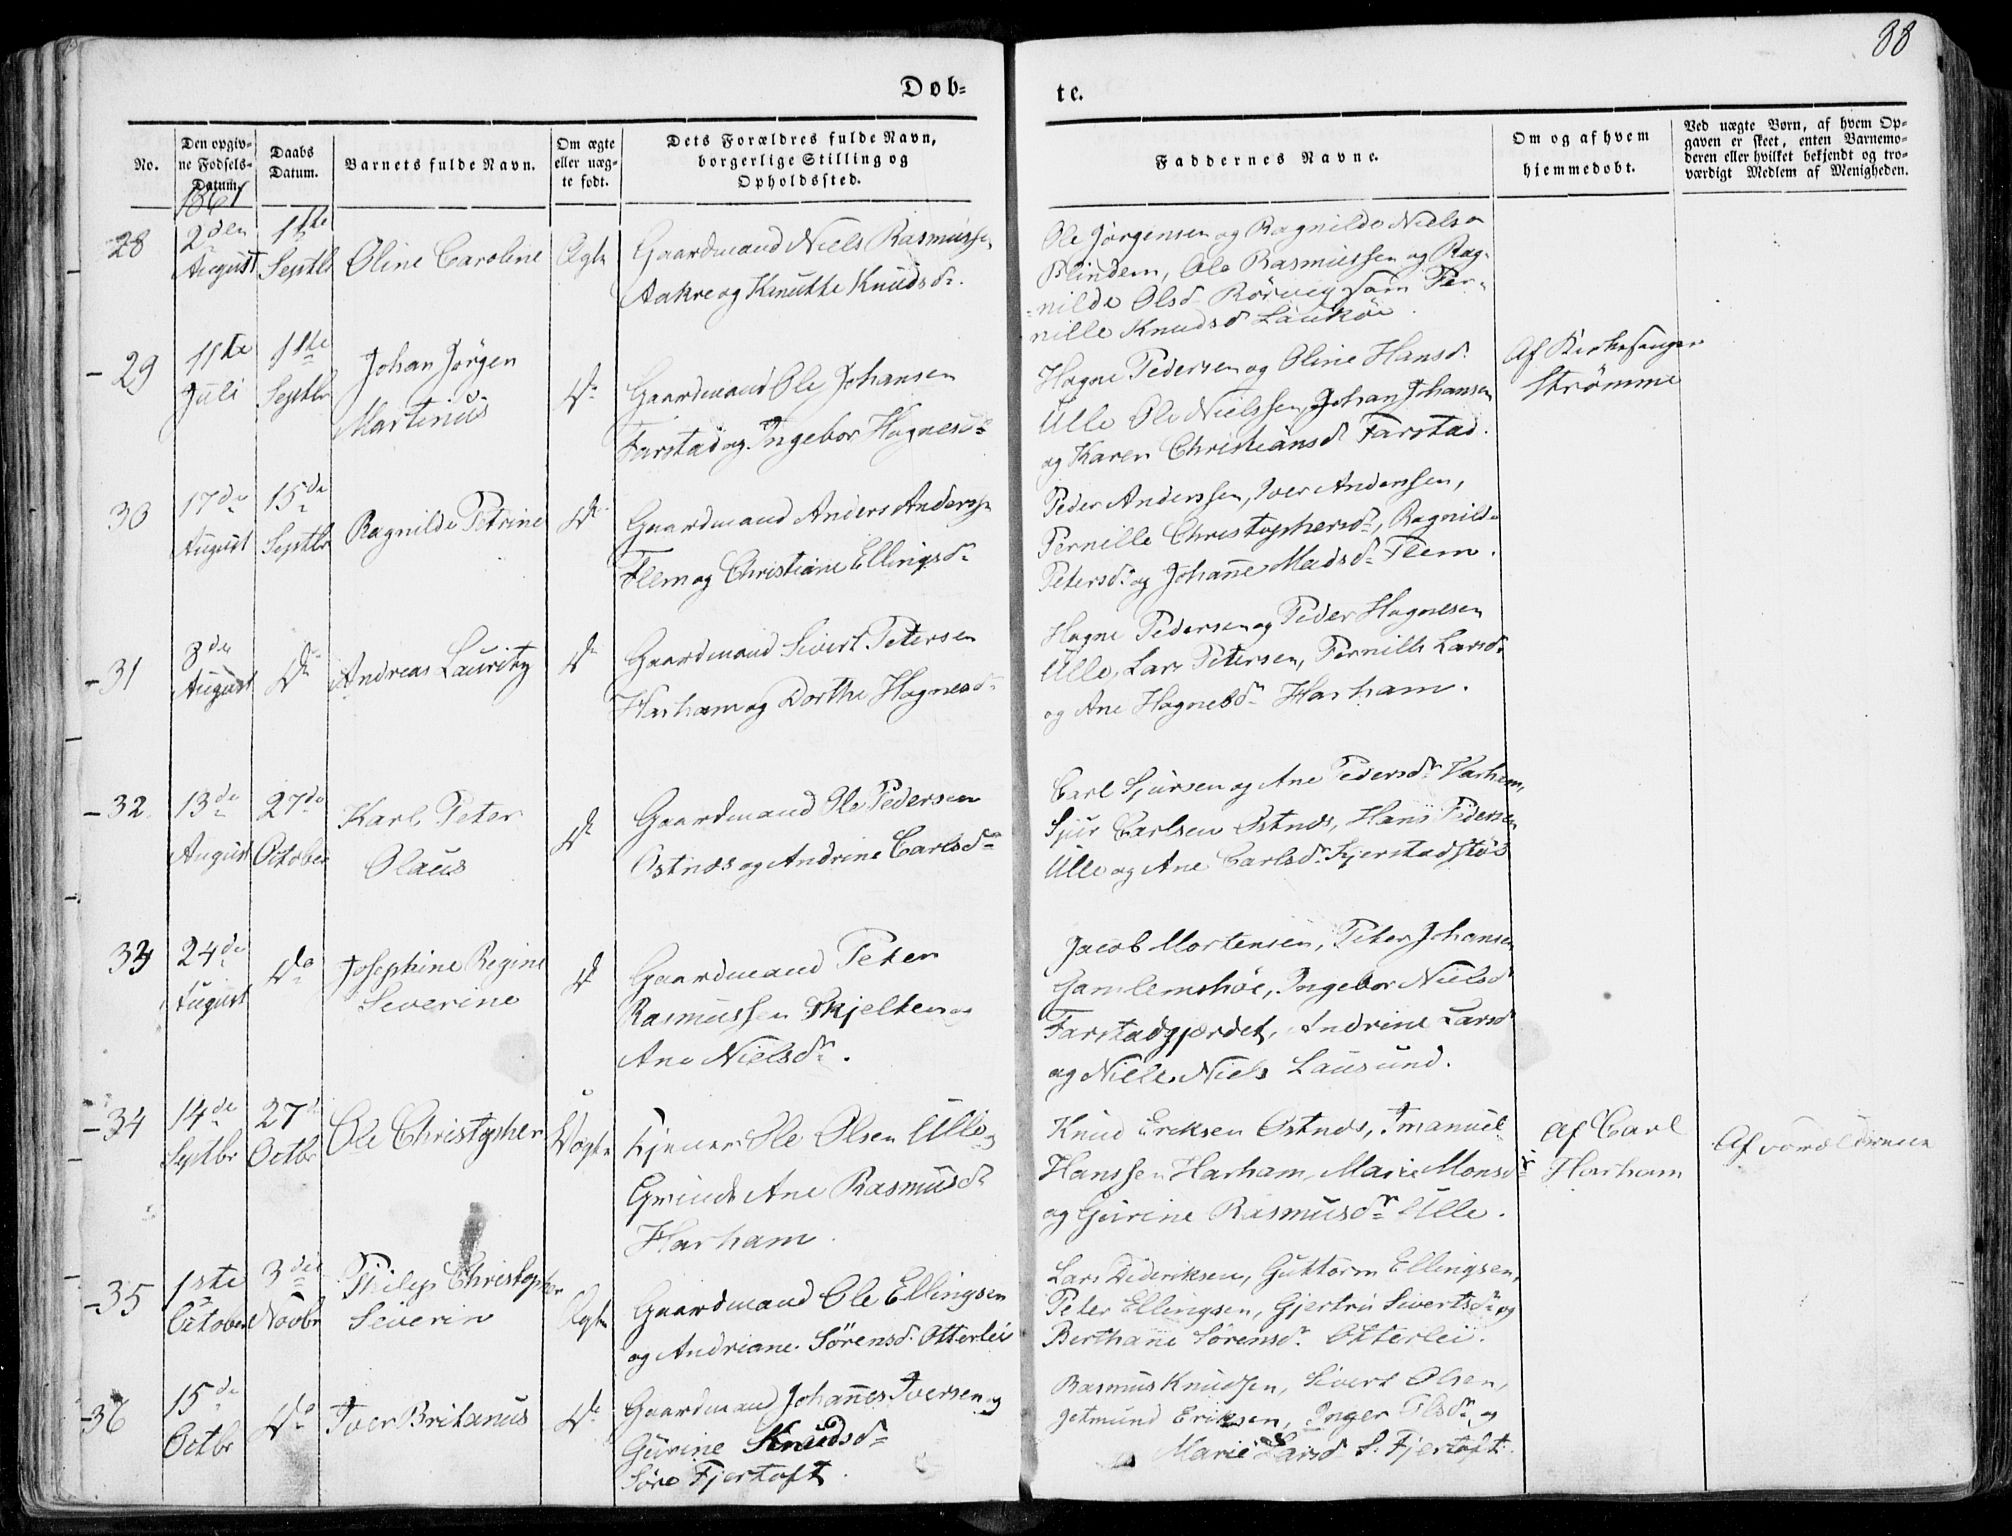 88
Døb-
te.
No.
Den opgiv-
ne Fødsels-
Datum.
Daabs
Datum.
Barnets fulde Navn.
Om ægte
eller uæg-
te født.
Dets Forældres fulde Navn,
borgerlige Stilling og
Opholdssted.
Faddernes Navne.
Om og af hvem
hjemmedøbt.
Ved uægte Børn, af hvem Op-
gaven er skeet, enten Barnemo-
deren eller hvilket bekjendt og tro-
værdigt Medlem af Menigheden.
1861
28
2den
August
1ste
Septbr
Oline Caroline
Ægte
Gaardmand Niels Rasmussen
Aakre og Knutte Knudsdr.
Ole Jørgensen og Ragnilde Nielsd
Blindem, Ole Rasmussen og Rag-
nilde Olsd Rörvig Sam Per-
nille Knudsd Laukøe.
29
11te
Juli
1ste
Septbr
Johan Jørgen
Martinus
Do
Gaardmand Ole Johansen
Farstad og Ingebor Hagnesdr
Hagne Pedersen og Oline Hansdr
Ulle Ole Nielssen, Johan Johansen
og Karen Christiansdr Farstad.
Af Kirkesanger
Strømme
30
17de
August
15de
Septbr
Ragnilde Petrine
Do
Gaardmand Anders Anderssen
Flem og Christiane Ellingsdr
Peder Anderssen, Iver Anderssen,
Pernille Christophersdr, Ragnilde
Petersdr og Johanne Madsdr Flem.
31
3de
August
Do
Andreas Lauritz
Do
Gaardmand Sivert Petersen
Harham og Dorthe Hagnesdr
Hagne Pedersen og Peder Hagnesen
Ulle, Lars Petersen, Pernille Larsdr
og Ane Hagnesdr Harham.
32
13de
August
27de
October
Karl Peter
Olaus
Do
Gaardmand Ole Pedersen
Østnæs og Andrine Carlsdr
Carl Sjursen og Ane Pedersdr Harham,
Sjur Carlsen Østnes, Hans Pedersen
Ulle og Ane Carlsdr Kjerstadstøl
33
24de
August
Do
Josephine Regine
Severine
Do
Gaardmand Peter
Rasmussen Skjelten og
Ane Nielsdr.
Jacob Mortensen, Peter Johansen
Gamlemshøe, Ingebor Nielsd
Farstadgjærdet, Andrine Larsd
og Nille Niels Lausund.
34
14de
Septbr
27d
Octbr
Ole Christopher
Uægte
Tjener Ole Olsen Ulle og
Ane Rasmusdr
Harham.
Knud Eriksen Østnes, Imanuel
Hanssen Harham, Marie Monsdr
og Gurine Rasmusdr Ulle.
Af Carl
Harham
Af
35
1ste
October
3die
Novbr
Philip Christopher
Severin
Ægte
Gaardmand Ole Ellingsen
og Andriane Sörensd. Otterlei
Lars Dideriksen, Guttorm Ellingsen,
Peter Ellingsen, Gjertru Sivertsdr og
Berthane Sørensdr Otterlei.
36
15de
Octbr
Do
Iver Britanus
Do
Gaardmand Johannes Iversen og
Gurine Knudsdr
Søre Fjertoft.
Rasmus Knudsen, Sivert Olsen,
Jetmund Eriksen, Inger Elsdr og
Marie Larsd S. Fjertoft.